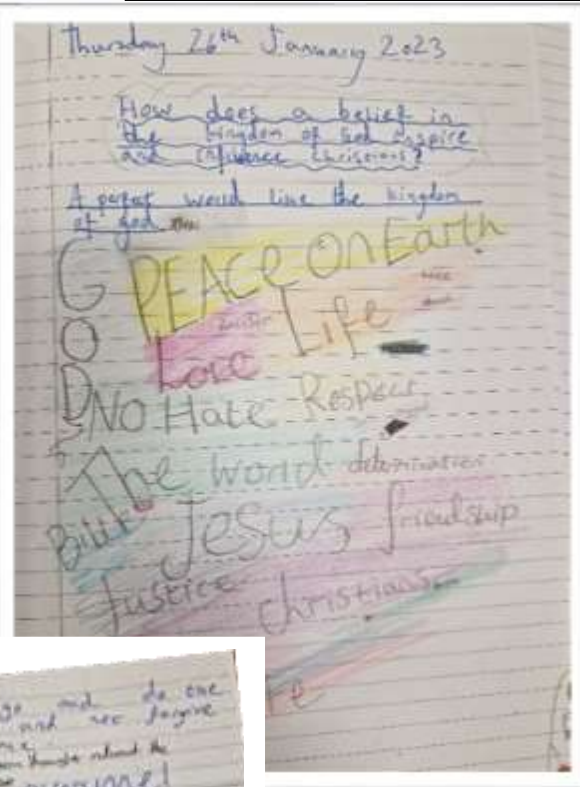 Thursday 26th January 2023
How does a belief in
the kingdom of God inspire
and influence christians?
A perfect world like the kingdom
of god
GOD's
PEACE On Earth
Love Life
NO Hate Respect
The world determination
Bible Jesus, friendship
Justice christians
go and do the
and not forgive